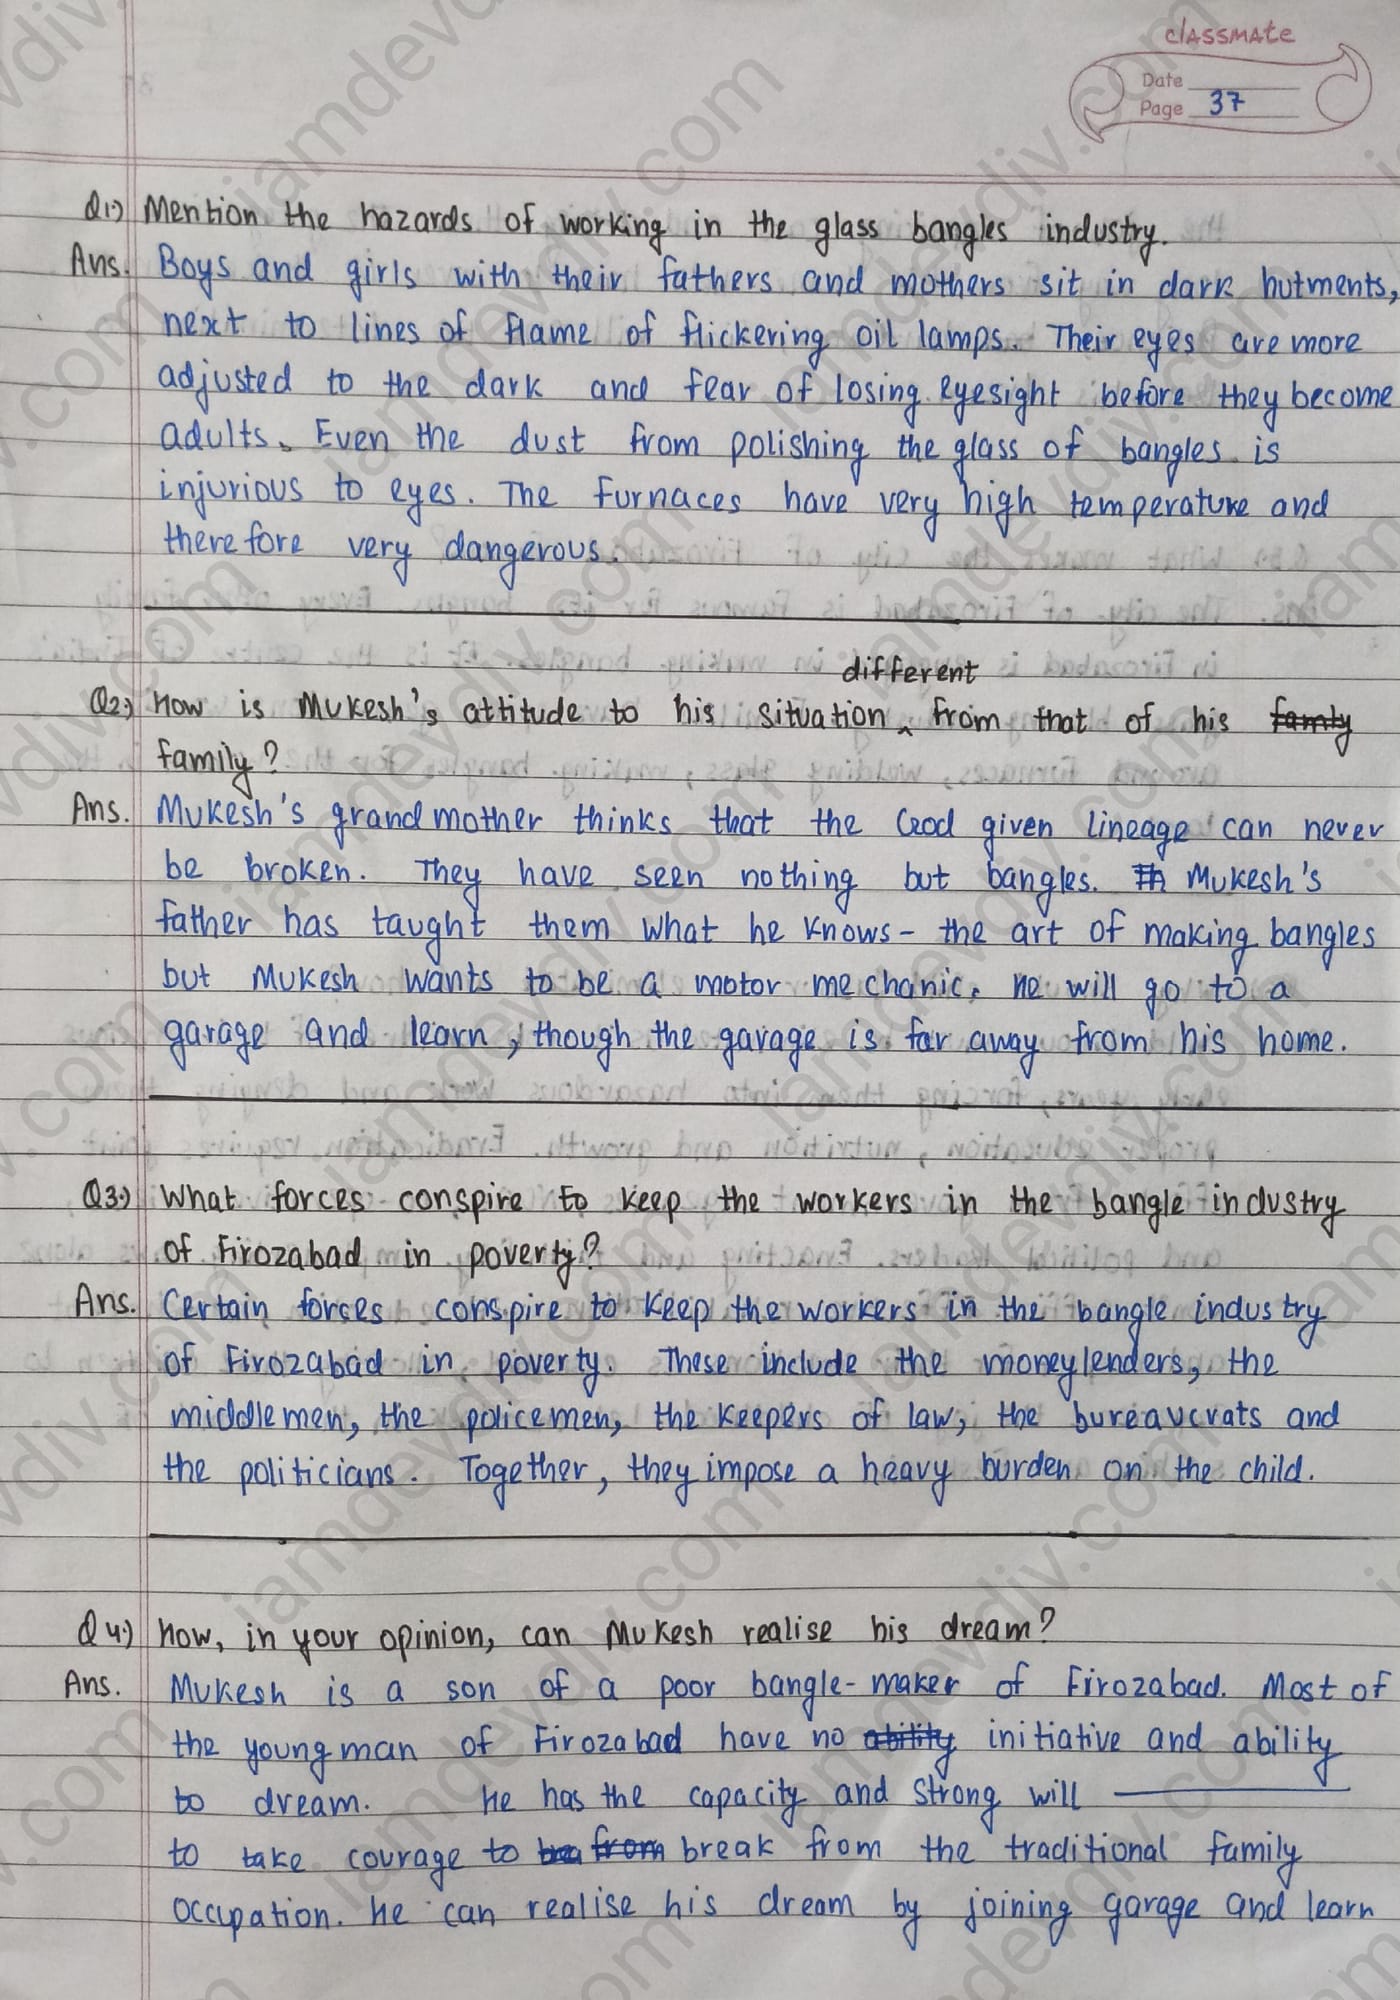 classmate
Date
Page 37
Q1) Mention the hazards of working in the glass bangles industry.
Ans. Boys and girls with their fathers and mothers sit in dark hutments,
next to lines of flame of flickering oil lamps. Their eyes are more
adjusted to the dark and fear of losing eyesight before they become
adults. Even the dust from polishing the glass of bangles is
injurious to eyes. The furnaces have very high temperature and
therefore very dangerous.
different
Q2) How is Mukesh's attitude to his situation ‸ from that of his famly
family?
Ans. Mukesh's grandmother thinks that the God given lineage can never
be broken. They have seen nothing but bangles. Mukesh's
father has taught them what he knows - the art of making bangles
but Mukesh wants to be a motor mechanic. He will go to a
garage and learn, though the garage is far away from his home.
Q3) What forces conspire to keep the workers in the bangle industry
of Firozabad in poverty?
Ans. Certain forces conspire to keep the workers in the bangle industry
of Firozabad in poverty. These include the moneylenders, the
middlemen, the policemen, the keepers of law, the bureaucrats and
the politicians. Together, they impose a heavy burden on the child.
Q4) How, in your opinion, can Mukesh realise his dream?
Ans. Mukesh is a son of a poor bangle-maker of Firozabad. Most of
the young man of Firozabad have no ability initiative and ability
to dream. He has the capacity and strong will
to take courage to from break from the traditional family
occupation. He can realise his dream by joining garage and learn
iamdevdiv.com